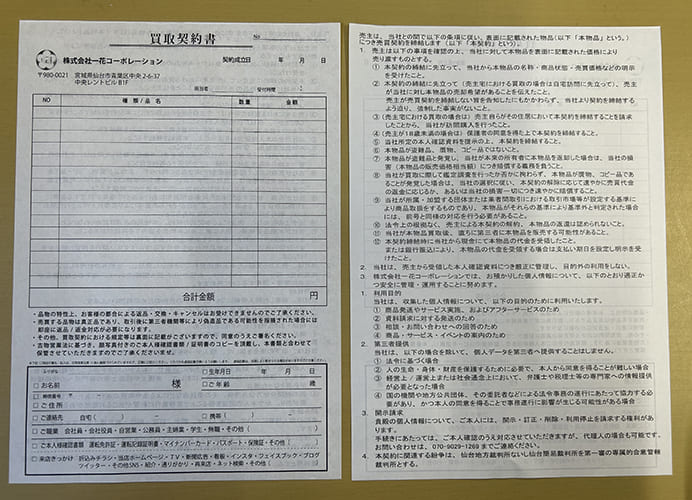 買取契約書
No.
株式会社一花コーポレーション
契約成立日 年 月 日
〒980-0021 宮城県仙台市青葉区中央 2-6-37
中央レントビル B1F
担当者 受付時間
NO 種 類 / 品 名 数 量 金 額
合計金額 円
・品物の特性上、お客様の都合による返品・交換・キャンセルはお受けできませんのでご了承ください。
・売買する品物は真正品であり、取引後に第三者機関等により偽造品である可能性を指摘された場合には
即座に返品 / 返金対応が必要になります。
・その他、買取契約における規定等は裏面に記載がございますので、同意のうえご署名ください。
・古物営業法に基づき、顔写真付きのご本人様確認書類 / 証明書のコピーを頂戴し、本書類と合わせて
保管させていただきますのでご了承くださいませ。
ふりがな
□お名前 様
□生年月日 年 月 日
□ご年齢 歳
□郵便番号 〒
□ご住所
□ご連絡先 自宅 ( ) - 携帯 ( ) -
□ご職業 会社員・会社役員・自営業・公務員・主婦業・学生・無職・その他 ( )
□ご本人様確認書類 運転免許証・運転記録証明書・マイナンバーカード・パスポート・保険証・その他 ( )
□来店きっかけ 折込みチラシ・当店ホームページ・TV・新聞広告・看板・インスタ・フェイスブック・ブログ
ツイッター・その他SNS・紹介・通りがかり・再来店・ネット検索・その他 ( )
売主は、当社との間で以下の条項に従い、表面に記載された物品 (以下「本物品」という。)
につき売買契約を締結します (以下「本契約」という)。
1. 売主は以下の事項を確認の上、当社に対して本物品を表面に記載された価格により
売り渡すものとする。
① 本契約の締結に先立って、当社から本物品の名称・商品状態・売買価格などの明示
を受けたこと。
② 本契約の締結に先立って (売主宅における買取の場合は自宅訪問に先立って)、売主
が当社に対し本物品の売却希望があることを伝えたこと。
売主が売買契約を締結しない旨を告知したにもかかわらず、当社より契約を締結するよ
う迫り、強制した事実がないこと。
③ (売主宅における買取の場合は) 売主自らがその住居において本契約を締結することを請求
したことから、当社が訪問購入を行ったこと。
④ (売主が18歳未満の場合は) 保護者の同意を得た上で本契約を締結すること。
⑤ 当社所定の本人確認資料を提示の上、本契約を締結すること。
⑥ 本物品が盗難品、贋物、コピー品ではないこと。
⑦ 本物品が盗難品と発覚し、当社が本来の所有者に本物品を返却した場合は、当社の損
害 (本物品の販売価格相当額) につき賠償する義務を負うこと。
⑧ 当社が買取に際して鑑定調査を行ったか否かに拘わらず、本物品が贋物、コピー品であ
ることが発覚した場合は、当社の選択に従い、本契約の解除に応じて速やかに売買代金
の返金に応じるか、あるいは当社の損害一切につき速やかに賠償すること。
⑨ 当社が所属・加盟する団体または業者間取引における取引市場等が設定する基準に
より商品取扱とするものであり、本物品がそれらの基準により基準外と判定された場合
には、前号と同様の対応を行う必要があること。
⑩ 法令上の根拠なく、売主による本契約の解約、本物品の返還は認められないこと。
⑪ 当社が本物品買取後、直ちに第三者に本物品を販売する可能性があること。
⑫ 本契約締結時に当社から現金にて本物品の代金を受領したこと。
または銀行振込により、本物品の代金を受領する場合は支払い期日を設定し明示を受
けたこと。
2. 当社は、売主から受領した本人確認資料につき厳正に管理し、目的外の利用をしない。
3. 株式会社一花コーポレーションでは、お預かりした個人情報について、以下のとおり適正か
つ安全に管理・運用することに努めます。
1. 利用目的
当社は、収集した個人情報について、以下の目的のために利用いたします。
① 商品発送やサービス実施、およびアフターサービスのため
② 資料請求に対する発送のため
③ 相談・お問い合わせへの回答のため
④ 商品・サービス・イベントの案内のため
2. 第三者提供
当社は、以下の場合を除いて、個人データを第三者へ提供することはしません。
① 法令に基づく場合
② 人の生命・身体・財産を保護するために必要で、本人から同意を得ることが難しい場合
③ 経営上 / 運営上または社会通念上において、弁護士や税理士等の専門家への情報提供
が必要となった場合
④ 国の機関や地方公共団体、その委託者などによる法令事務の遂行にあたって協力する必
要があり、かつ本人の同意を得ることで事務遂行に影響が生じる可能性がある場合
3. 開示請求
貴殿の個人情報について、ご本人には、開示・訂正・削除・利用停止を請求する権利があ
ります。
手続きにあたっては、ご本人確認のうえ対応させていただきますが、代理人の場合も可能です。
お問い合わせは、070-9029-1269 までご連絡ください。
4. 本契約に関連する紛争は、仙台地方裁判所ないし仙台簡易裁判所を第一審の専属的合意管轄
裁判所とする。